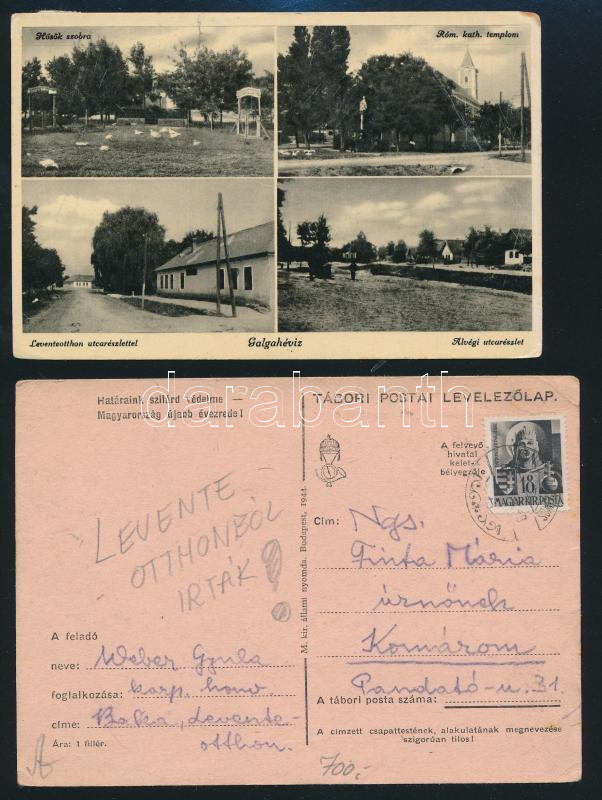 Hősök szobra
Róm. kath. templom
Leventeotthon utcarészlettel
Galgahévíz
Alvégi utcarészlet
darabanth
Határaink szilárd védelme —
Magyarország újabb évezrede!
TÁBORI POSTAI LEVELEZŐLAP.
A felvevő
hivatal
kelet-
bélyegzője
18
MAGYAR KIR. POSTA
LEVENTE
OTTHONBÓL
IRTÁK!
M. kir. állami nyomda. Budapest, 1944.
Cím: Ngs.
Finta Mária
úrnőnek
Komárom
Pandató-u. 31.
A tábori posta száma:
A címzett csapattestének, alakulatának megnevezése
szigorúan tilos!
A feladó
neve: Weber Gyula
foglalkozása: karp. honv.
címe: Baka, Levente-
otthon.
Ára: 1 fillér.
700,-